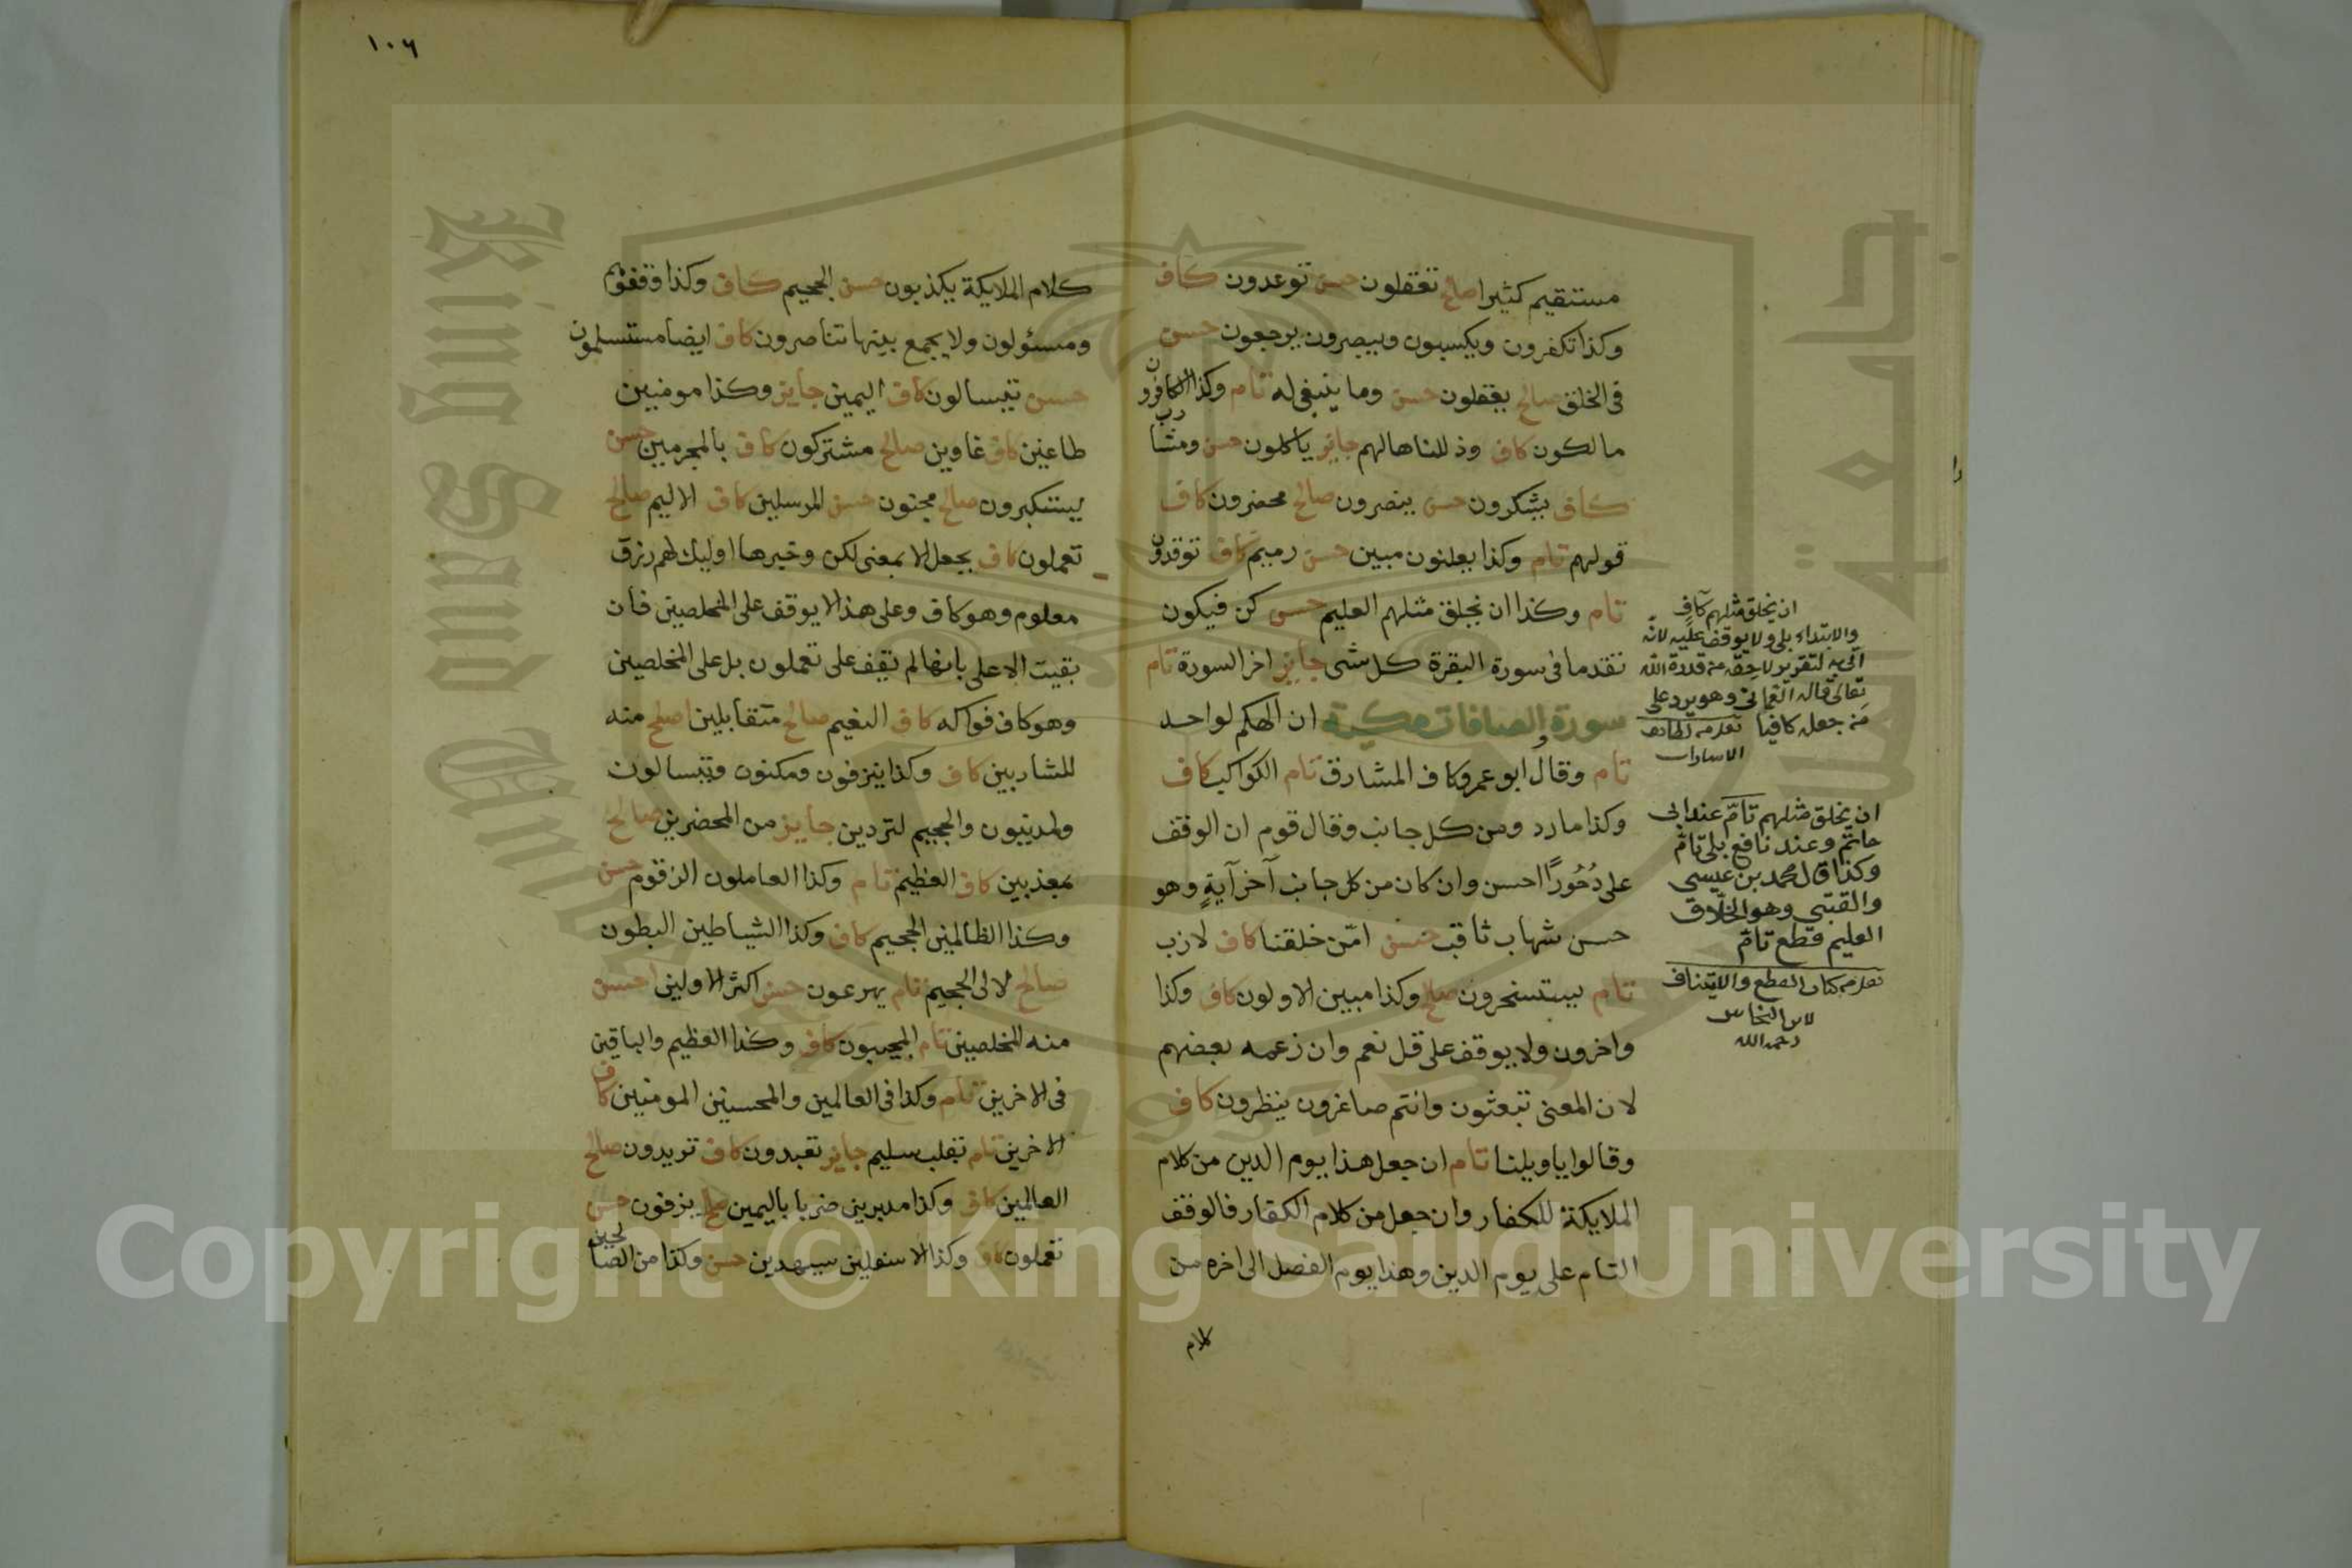 مستقيم كثيرا صالح تعقلون حسن توعدون كاف
وكذا تكفرون ويكسبون ويبصرون يرجعون حسن
في الخلق صالح يعقلون حسن وما ينبغي له تام وكذا الكافرون
مالكون كاف وذللناها لهم جايز ياكلون حسن ومشارب
كاف يشكرون حسن ينصرون صالح محضرون كاف
قولهم تام وكذا يعلنون مبين حسن رميم كاف توقدون
تام وكذا ان يخلق مثلهم العليم حسن كن فيكون
تقدم ما في سورة البقرة كل شى جايز اخر السورة تام
سورة والصافات مكية ان الهكم لواحد
تام وقال ابو عمرو كاف المشارق تام الكواكب كاف
وكذا مارد ومن كل جانب وقال قوم ان الوقف
على دُحُورًا احسن وان كان من كل جانب آخر آيةٍ وهو
حسن شهاب ثاقب حسن امّن خلقنا كاف لازب
تام يستسخرون صالح وكذا مبين الاولون كاف وكذا
واخرون ولا يوقف على قل نعم وان زعمه بعضهم
لان المعنى تبعثون وانتم صاغرون ينظرون كاف
وقالوا ياويلنا تام ان جعل هذا يوم الدين من كلام
الملايكة للكفار وان جعل من كلام الكفار فالوقف
التام على يوم الدين وهذا يوم الفصل الى اخره من
كلام
ان يخلق مثلهم كاف
والابتداء بلى ولا يوقف عليه لانه
اتى به لتقرير لاحقه من قدرة الله
تعالى قاله العماني وهو يرد على
من جعله كافيا
الاسارات
ان يخلق مثلهم تامّ عند ابى
حاتم وعند نافع بلى تامّ
وكذا قال محمد بن عيسى
والقتبي وهو الخلّاق
العليم قطع تامّ
كتاب القطع والايتناف
لابن النحاس
رحمه الله
١٠٦
كلام الملايكة يكذبون حسن الجحيم كاف وكذا وقفوهم
ومسئولون ولا يجمع بينها تناصرون كاف ايضا مستسلمون
حسن يتسالون كاف اليمين جايز وكذا مومنين
طاغين كاف غاوين صالح مشتركون كاف بالمجرمين حسن
يستكبرون صالح مجنون حسن المرسلين كاف الاليم صالح
تعملون كاف بجعل الا بمعنى لكن وخبرها اوليك لهم رزق
معلوم وهو كاف وعلى هذا لا يوقف على المخلصين فان
بقيت الا على بابها لم تقف على تعملون بل على المخلصين
وهو كاف فواكه كاف النعيم صالح متقابلين اصلح منه
للشاربين كاف وكذا ينزفون ومكنون ويتسالون
ولمدينون والجحيم لتردين جايز من المحضرين صالح
بمعذبين كاف العظيم تام وكذا العاملون الزقوم حسن
وكذا الظالمين الجحيم كاف وكذا الشياطين البطون
صالح لالى الجحيم تام يهرعون حسن اكثر الاولين احسن
منه المخلصين تام المجيبون كاف وكذا العظيم والباقين
في الاخرين تام وكذا في العالمين والمحسنين المومنين كاف
الاخرين تام بقلب سليم جايز تعبدون كاف تريدون صالح
العالمين كاف وكذا مدبرين ضربا باليمين صالح يزفون حسن
تعملون كاف وكذا الاسفلين سيهدين حسن وكذا من الصالحين
King Saud University
1957
Copyright © King Saud University